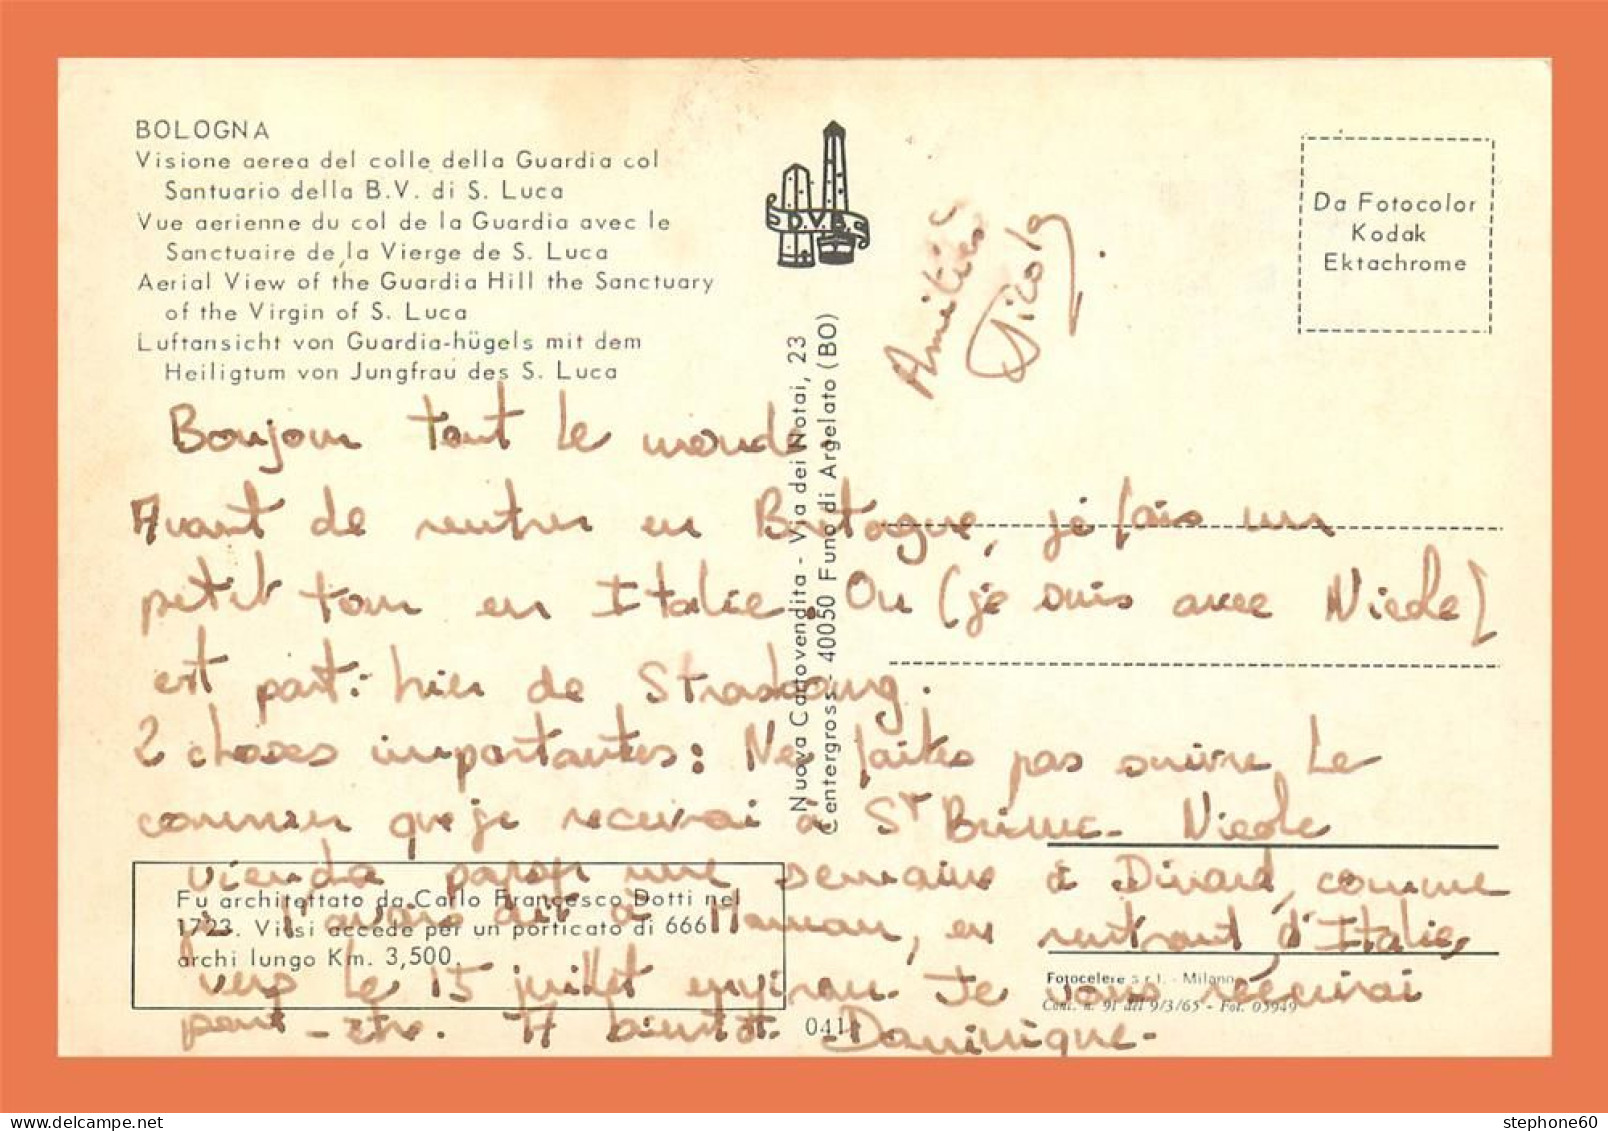 BOLOGNA
Visione aerea del colle della Guardia col
Santuario della B.V. di S. Luca
Vue aerienne du col de la Guardia avec le
Sanctuaire de la Vierge de S. Luca
Aerial View of the Guardia Hill the Sanctuary
of the Virgin of S. Luca
Luftansicht von Guardia-hügels mit dem
Heiligtum von Jungfrau des S. Luca
D.V.B.
Da Fotocolor
Kodak
Ektachrome
Amitiés
Nicole
Nuova Cartovendita - Via dei Notai, 23
Centergross - 40050 Funo di Argelato (BO)
Bonjour tout le monde
Avant de rentrer en Bretagne, je fais un
petit tour en Italie. On (je suis avec Nicole)
est parti hier de Strasbourg.
2 choses importantes: Ne faites pas suivre le
courrier que je recevrai à St Brieuc. Nicole
viendra passer une semaine à Dinard, comme
je l'avais dit à Maman, en rentrant d'Italie,
vers le 15 juillet environ. Je vous écrirai
peut-être. A bientôt. Dominique.
Fu architettato da Carlo Francesco Dotti nel
1723. Visi accede per un porticato di 666
archi lungo Km. 3,500.
041
Fotocelere s.r.l. - Milano
Conc. n. 91 del 9/3/65 - Fot. 05949
stephone60